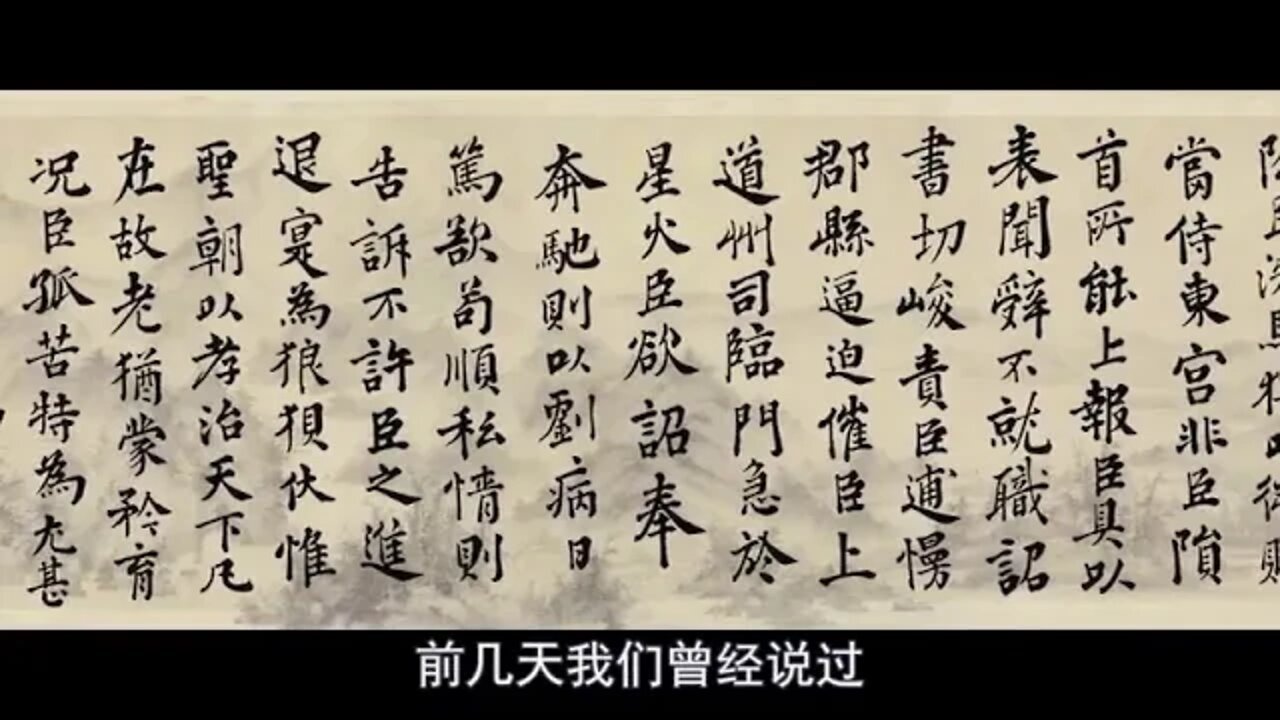 當侍東宮非臣隕
首所能上報臣具以
表聞辭不就職詔
書切峻責臣逋慢
郡縣逼迫催臣上
道州司臨門急於
星火臣欲詔奉
奔馳則以劉病日
篤欲苟順私情則
告訴不許臣之進
退寔為狼狽伏惟
聖朝以孝治天下凡
在故老猶蒙矜育
况臣孤苦特為尤甚
前几天我们曾经说过